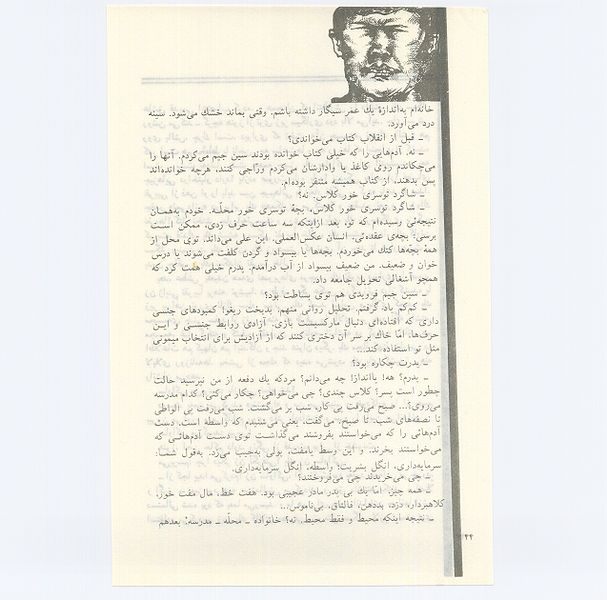 خانه‌ام به‌اندازهٔ یك عمر سیگار داشته باشم. وقتی بماند خشك می‌شود. سینه
درد می‌آورد.
ـ قبل از انقلاب کتاب می‌خواندی؟
ـ نه. آدم‌هایی را که خیلی کتاب خوانده بودند سین جیم می‌کردم. آنها را
می‌چکاندم روی کاغذ یا وادارشان می‌کردم ورّاجی کنند، هرچه خوانده‌اند
پس بدهند. از کتاب همیشه متنفر بوده‌ام.
ـ شاگرد توسری خور کلاس. نه؟
ـ شاگرد توسری خور کلاس، بچهٔ توسری خور محلّه. خودم به‌همـان
نتیجه‌ئی رسیده‌ام که تو، بعد ازاینکه سه ساعت حرف زدی، ممکن است
برسی: بچه‌ی عقده‌ئی. انسان عکس‌العملی. این علی می‌داند. توی محل از
همهٔ بچّه‌ها کتك می‌خوردم. بچه‌ها یا بیسواد و گردن کلفت می‌شوند یا درس
خوان و ضعیف. من ضعیف بیسواد از آب درآمدم. پدرم خیلی همّت کرد که
همچو آشغالی تحویل جامعه داد.
ـ سین جیم فرویدی هم توی بساطت بود؟
ـ کم‌کم یاد گرفتم. تحلیل روانی متهم. بدبخت ریغو! کمبودهای جنسی
داری که افتاده‌ای دنبال مارکسیست بازی. آزادی روابط جنسـی و ایـن
حرف‌ها. امّا خاك بر سر آن دختری کنند که از آزادیش برای انتخاب میمونی
مثل تو استفاده کند...
ـ پدرت چکاره بود؟
ـ پدرم؟ هه! پاانداز! چه می‌دانم؟ مردکه یك دفعه از من نپرسید حالت
چطور است پسر؟ کلاس چندی؟ چی می‌خواهی؟ چکار می‌کنی؟ کدام مدرسه
می‌روی؟... صبح می‌رفت پی کار، شب بر می‌گشت. شب می‌رفت پی الواطی
تا نصفه‌های شب. تا صبح. می‌گفت، یعنی می‌شنیدم که واسطه است. دست
آدم‌هائی را که می‌خواستند بفروشند می‌گذاشـت توی دسـت آدم‌هائـی که
می‌خواستند بخرند. و این وسط یامفت، پولی به‌جیب می‌زد. به‌قول شمـا:
سرمایه‌داری، انگل بشریت؛ واسطه، انگل سرمایه‌داری.
ـ چی می‌خریدند چی می‌فروختند؟
ـ همه چیز. امّا یك بی پدر مادر عجیبی بود. هفت خط، مال مفت خور،
کلاهبردار، دزد، بددهن، فالتاق، بی‌ناموس...
ـ نتیجه اینکه محیط و فقط محیط. نه؟ خانواده ـ محلّه ـ مدرسه: بعدهم